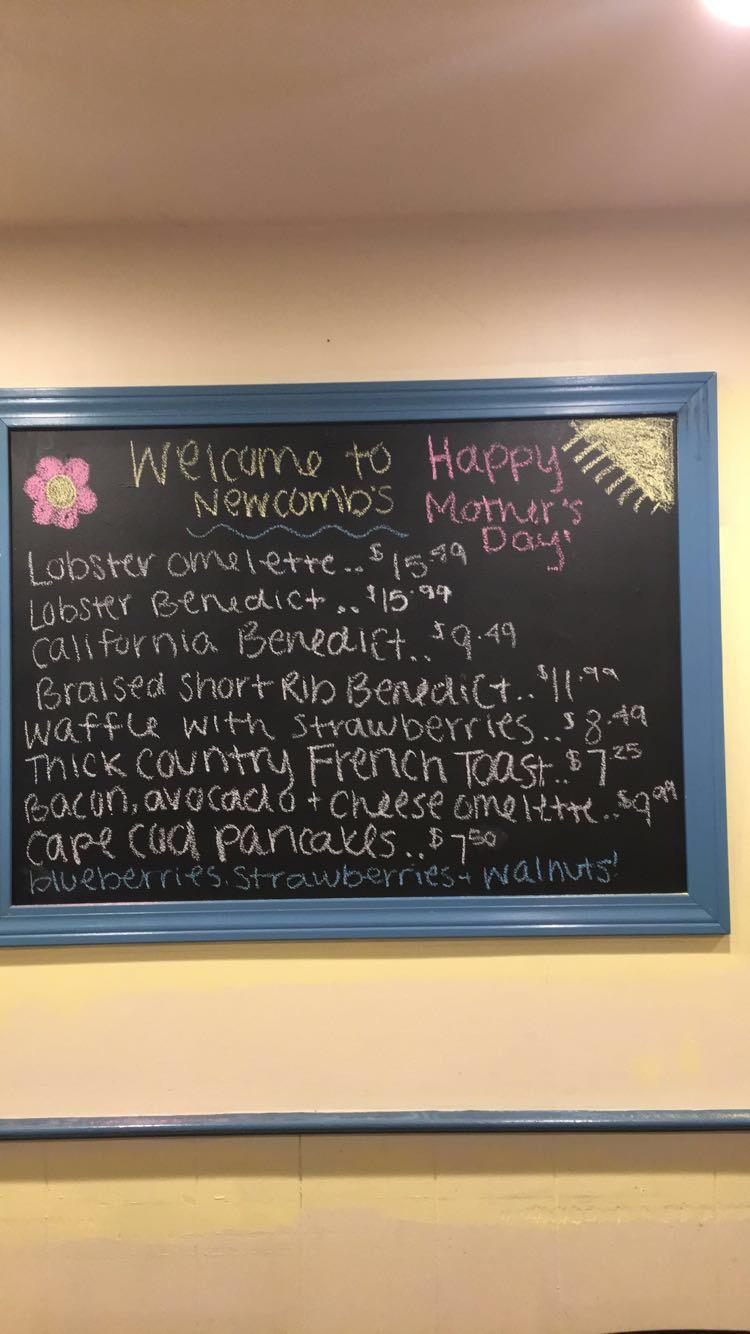 Welcome to
Newcomb's
Happy
Mother's
Day!
Lobster omelette.. $15.99
Lobster Benedict .. $15.99
California Benedict.. $9.49
Braised Short Rib Benedict.. $11.99
Waffle with strawberries.. $8.49
Thick Country French Toast.. $7.25
Bacon, avocado + cheese omelette.. $9.99
Cape Cod pancakes.. $7.50
blueberries, strawberries + walnuts!